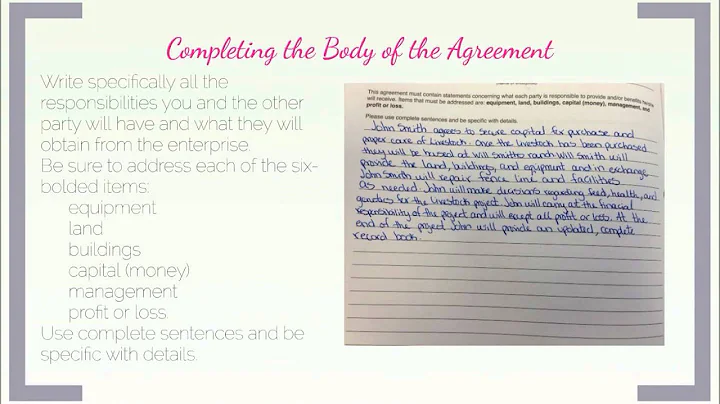 Completing the Body of the Agreement
Write specifically all the
responsibilities you and the other
party will have and what they will
obtain from the enterprise.
Be sure to address each of the six-
bolded items:
equipment
land
buildings
capital (money)
management
profit or loss.
Use complete sentences and be
specific with details.
This agreement must contain statements concerning what each party is responsible to provide and/or benefits
will receive. Items that must be addressed are: equipment, land, buildings, capital (money), management, and
profit or loss.
Please use complete sentences and be specific with details.
John Smith agrees to secure capital for purchase and
proper care of Livestock. Once the livestock has been purchased
they will be housed at Will Smiths ranch. Will Smith will
provide the land, buildings, and equipment and in exchange
John Smith will repair fence line and facilities
as needed. John will make decisions regarding feed, health, and
genetics for the livestock project. John will carry all the financial
responsibility of the project and will except all profit or loss. At the
end of the project John will provide an updated, complete
record book.